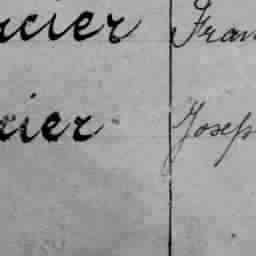 rcier Fran
rier Joseph